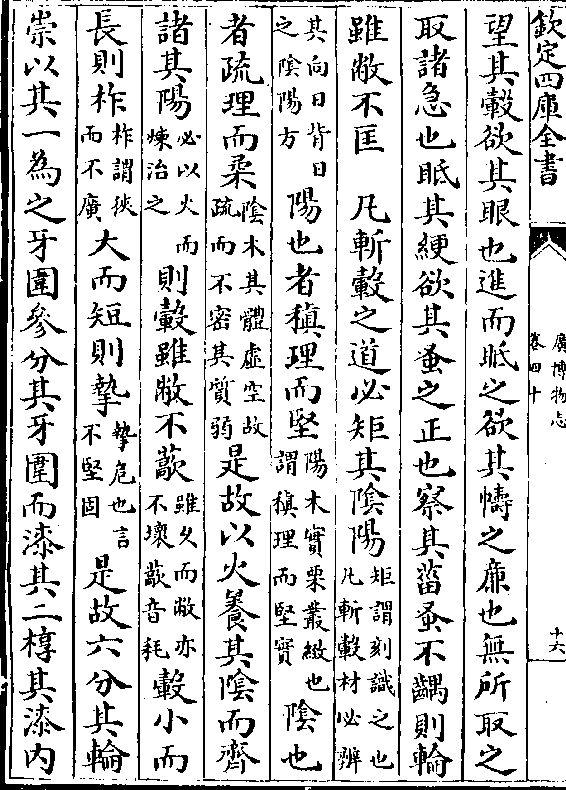 欽定四庫全書
廣博物志
卷四十
十六
望其轂欲其眼也進而眂之欲其幬之亷也無所取之
取諸急也眂其綆欲其蚤之正也察其菑蚤不齵則輪
雖敝不匡 凡斬轂之道必矩其隂陽矩謂刻識之也凡斬轂材必辨
其向日背日之隂陽方陽也者稹理而堅陽木實栗叢緻也謂稹理而堅實隂也
者疏理而柔隂木其體虛空故疏而不密其質弱是故以火養其隂而齊
諸其陽必以火而煉治之則轂雖敝不藃雖久而敝亦不壞藃音耗轂小而
長則柞柞謂狹而不廣大而短則摯摯危也言不堅固是故六分其輪
崇以其一為之牙圍參分其牙圍而漆其二椁其漆内